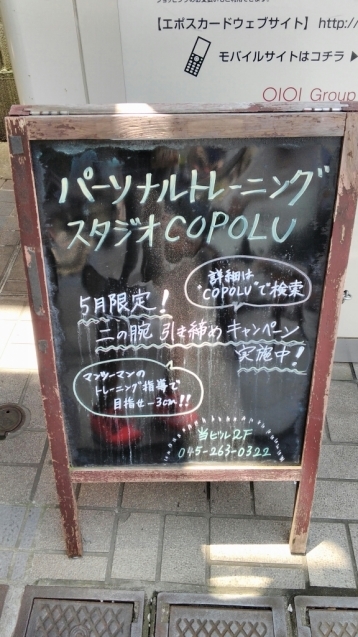 【エポスカードウェブサイト】 http://
モバイルサイトはコチラ▶
OIOI Group
パーソナルトレーニング
スタジオCOPOLU
詳細は
"COPOLU"で検索
5月限定!
二の腕 引き締めキャンペーン
実施中!
マンツーマンの
トレーニング指導で
目指せ-3cm!!
当ビル2F
045-263-0322